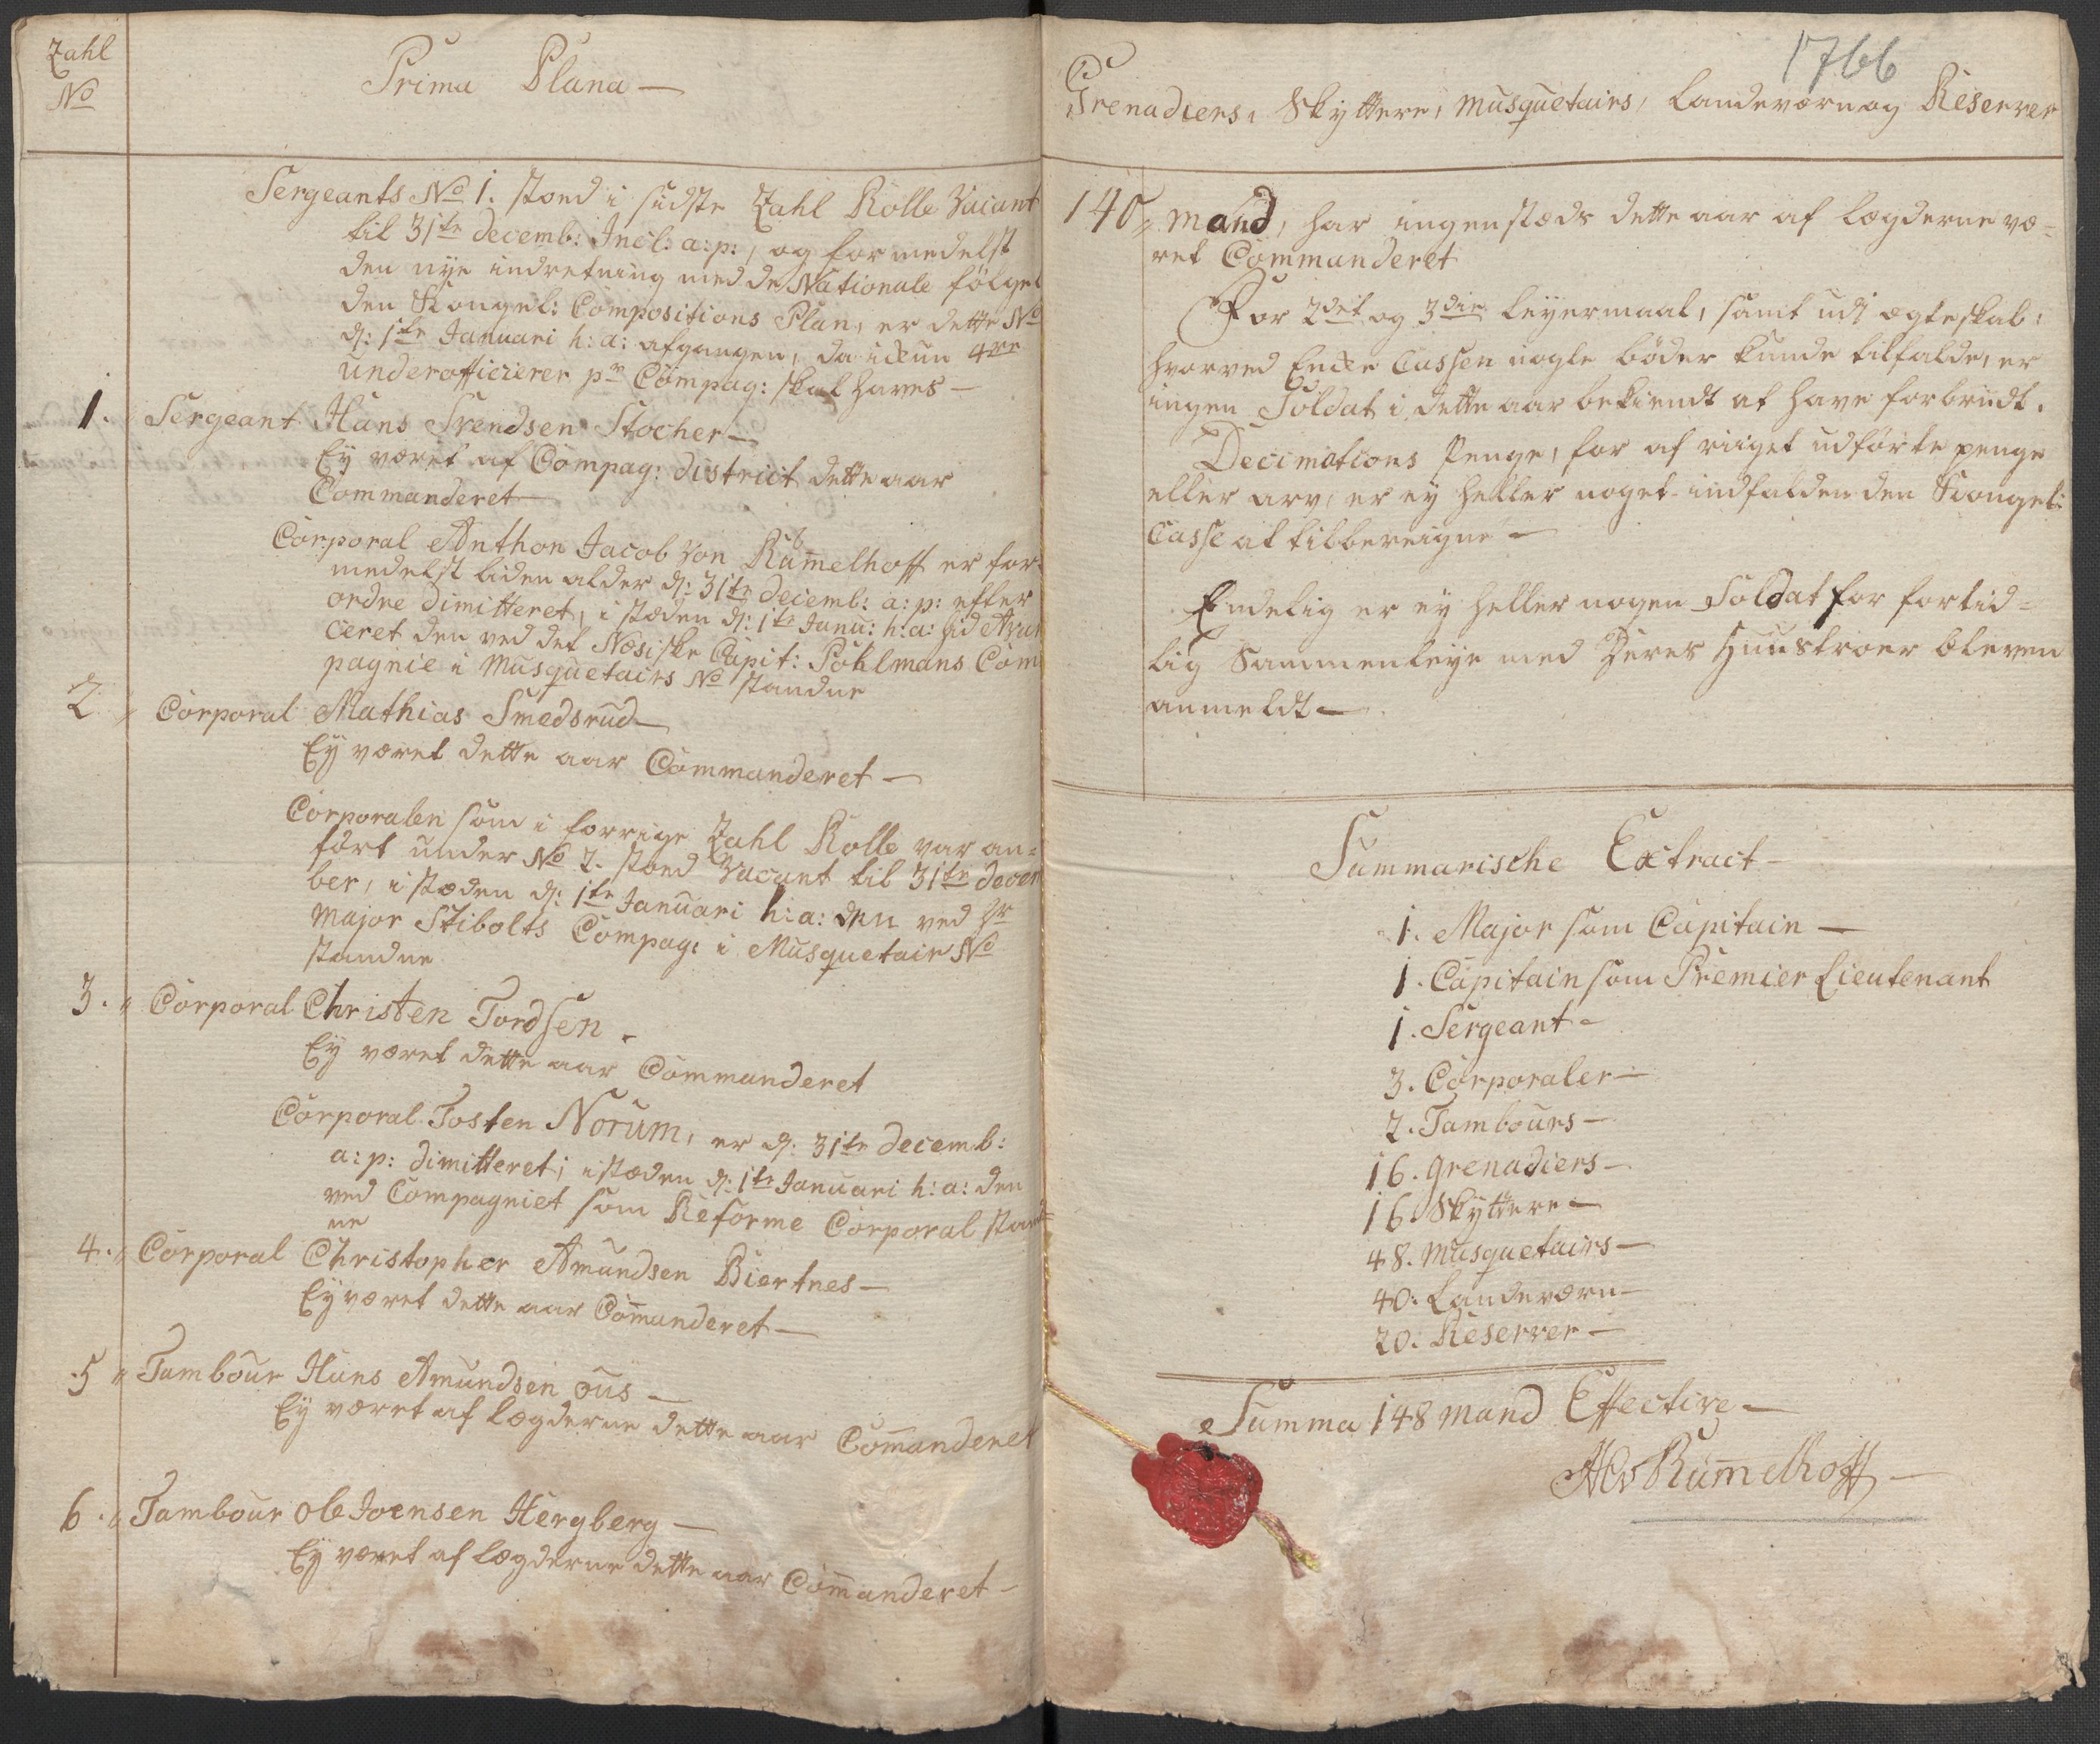 Zahl
No
Prima Plana —
Sergeants No 1. stoed i sidste Zahl Rolle Vacant
til 31te decemb: Incl: a: p:, og formedelst
den nye indretning med de Nationale følgel
den Kongel: Compositions Plan, er dette No
d: 1te Januari h: a: afgangen, da ickun 4re
underofficierer pr Compag: skal haves —
1. Sergeant Hans Svendsen Stocher —
Ey været af Compag: district dette aar
Commanderet
Corporal Anthon Jacob von Rummelhoff er for-
medelst liden alder d: 31te decemb: a: p: efter
ordre dimitteret, i stæden d: 1te Janu: h: a: hid Avan
ceret den ved det Næsiske Capit: Pohlmans Com
pagnie i Musquetairs No standne
2. Corporal Mathias Smedsrud —
Ey været dette aar Commanderet —
Corporalen som i forrige Zahl Rolle var an=
ført under No 2. stoed Vacant til 31te decem
ber, i stæden d: 1te Januari h: a: den ved Hr
Major Stibolts Compag: i Musquetair No
standne
3. Corporal Christen Tordsen.
Ey været dette aar Commanderet
Corporal Tosten Norum, er d: 31te decemb:
a: p: dimitteret; i stæden d: 1te Januari h: a: den
ved Compagniet som Reforme Corporal stand=
ne
4. Corporal Christopher Amundsen Biertnes —
Ey været dette aar Commanderet —
5 Tambour Hans Amundsen ous —
Ey været af lægderne dette aar Commanderet
6. Tambour Ole Joensen Hergberg —
Ey været af lægderne dette aar Commanderet —
1766
Grenadiers, Skyttere, Musquetairs, Landeværn og Reserver
140 Mand, har ingenstæds dette aar af lægderne væ=
ret Commanderet
For 2det og 3die Leyermaal, samt udj ægteskab:
hvorved Encke Cassen nogle bøder kunde tilfalde, er
ingen Soldat i dette aar bekiendt at have forbrudt.
Decimations Penge, for af riiget udførte penge
eller arv, er ey heller noget indfalden den Kongel:
Casse at tilbereigne —
Endelig er ey heller nogen Soldat for fortid=
lig Sammenleye med Deres Huustroer bleven
anmeldt —
Summarische Extract —
1. Major som Capitain —
1. Capitain som Premier Lieutenant
1. Sergeant —
3. Corporaler —
2. Tambours —
16. Grenadiers —
16. Skyttere —
48. Musquetairs —
40: Landeværn —
20: Reserver —
Summa 148 Mand Effective —
Rummelhoff —